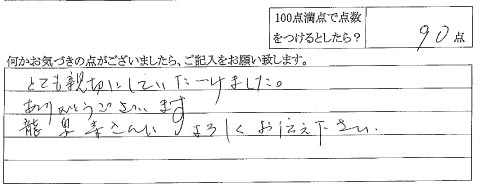 100点満点で点数
をつけるとしたら？ 90点
何かお気づきの点がございましたら、ご記入をお願い致します。
とても親切にしていただけました。
ありがとうございます
龍泉寺さんによろしくお伝え下さい。